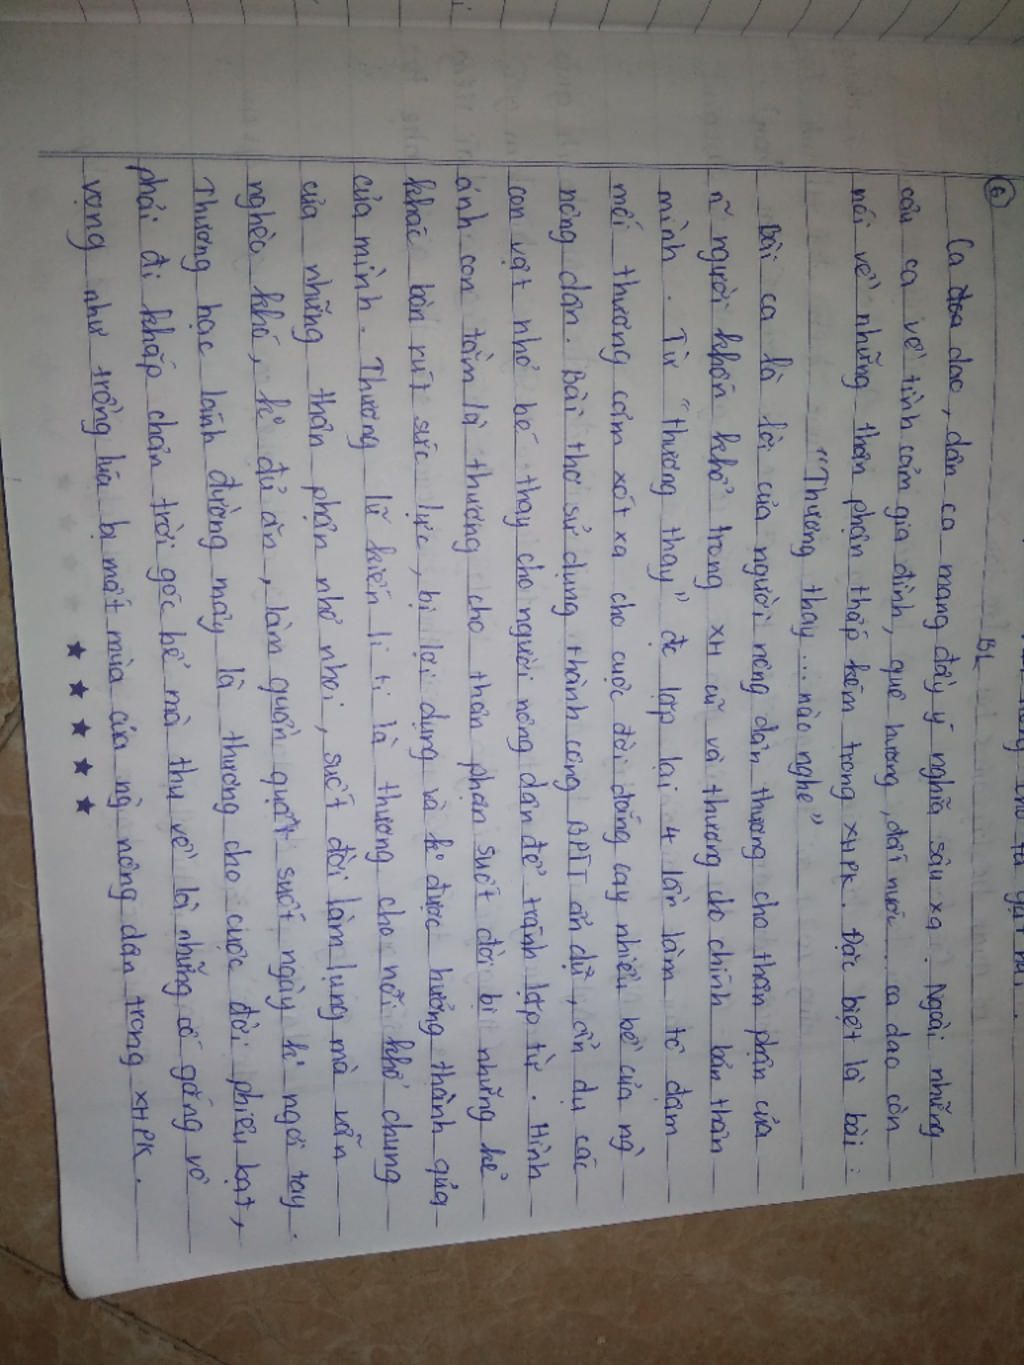 ⑥
BL
Ca dao, dân ca mang đầy ý nghĩa sâu xa. Ngoài những
câu ca về tình cảm gia đình, quê hương, đất nước... ca dao còn
nói về những thân phận thấp kém trong XHPK. Đặc biệt là bài:
"Thương thay ... nào nghe"
Bài ca là lời của người nông dân thương cho thân phận của
n~ người khốn khổ trong XH cũ và thương cho chính bản thân
mình. Từ "thương thay" đc lặp lại 4 lần làm tô đậm
mối thương cảm xót xa cho cuộc đời đắng cay nhiều bề của ng`
nông dân. Bài thơ sử dụng thành công BPTT ẩn dụ, ẩn dụ các
con vật nhỏ bé thay cho người nông dân để tránh lặp từ. Hình
ảnh con tằm là thương cho thân phận suốt đời bị những kẻ
khác bòn rút sức lực, bị lợi dụng và k° được hưởng thành quả
của mình. Thương lũ kiến li ti là thương cho nỗi khổ chung
của những thân phận nhỏ nhoi, suốt đời làm lụng mà vẫn
nghèo khó, k° đủ ăn, làm quần quật suốt ngày k° ngơi tay.
Thương hạc lánh đường mây là thương cho cuộc đời phiêu bạt,
phải đi khắp chân trời góc bể mà thu về là những cố gắng vô
vọng như trồng lúa bị mất mùa của ng` nông dân trong XHPK.